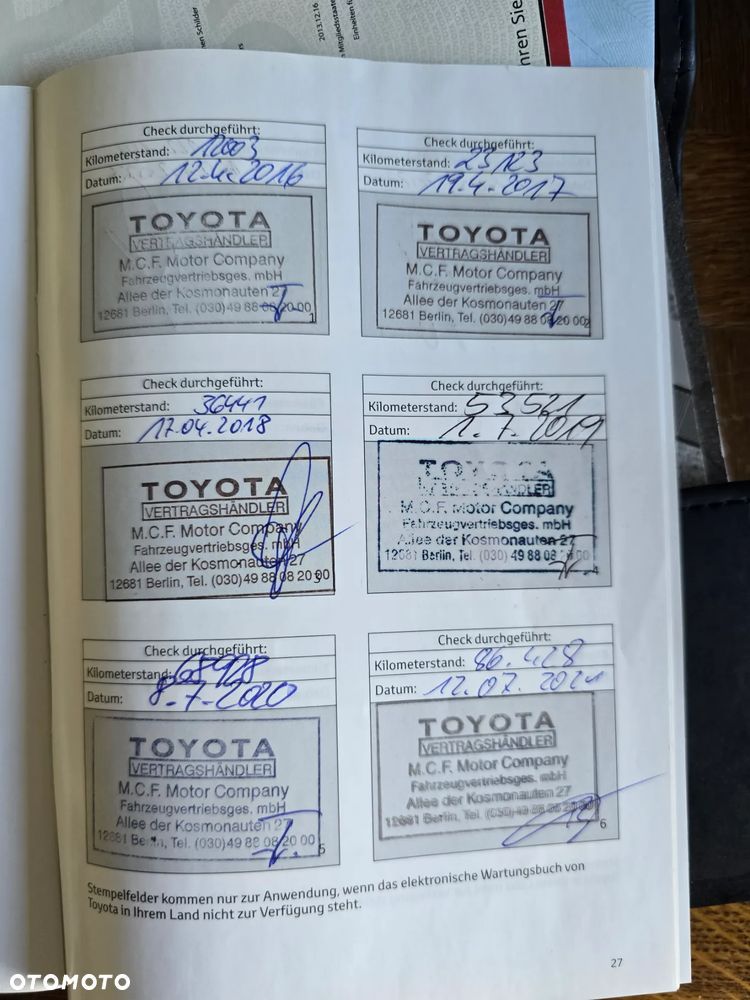 nen Schilder
2013.12.16
Mitgliedsstaate
Einheiten f
hren Sie
Check durchgeführt:
Kilometerstand: 12003
Datum: 2016
TOYOTA
VERTRAGSHÄNDLER
M.C.F. Motor Company
Fahrzeugvertriebsges. mbH
Allee der Kosmonauten 27
12681 Berlin, Tel. (030) 49 88 08 20 00
1
Check durchgeführt:
Kilometerstand: 23123
Datum: 19.4.2017
TOYOTA
VERTRAGSHÄNDLER
M.C.F. Motor Company
Fahrzeugvertriebsges. mbH
Allee der Kosmonauten 27
12681 Berlin, Tel. (030) 49 88 08 20 00
2
Check durchgeführt:
Kilometerstand: 36441
Datum: 17.04.2018
TOYOTA
VERTRAGSHÄNDLER
M.C.F. Motor Company
Fahrzeugvertriebsges. mbH
Allee der Kosmonauten 27
12681 Berlin, Tel. (030) 49 88 08 20 00
3
Check durchgeführt:
Kilometerstand: 53521
Datum: 1.7.2019
TOYOTA
VERTRAGSHÄNDLER
M.C.F. Motor Company
Fahrzeugvertriebsges. mbH
Allee der Kosmonauten 27
12681 Berlin, Tel. (030) 49 88 08
4
Check durchgeführt:
Kilometerstand: 68928
Datum: 8.7.2020
TOYOTA
VERTRAGSHÄNDLER
M.C.F. Motor Company
Fahrzeugvertriebsges. mbH
Allee der Kosmonauten 27
12681 Berlin, Tel. (030) 49 88 08 20 00
5
Check durchgeführt:
Kilometerstand: 86.428
Datum: 12.07.2021
TOYOTA
VERTRAGSHÄNDLER
M.C.F. Motor Company
Fahrzeugvertriebsges. mbH
Allee der Kosmonauten 27
12681 Berlin, Tel. (030) 49 88 08 20 00
6
Stempelfelder kommen nur zur Anwendung, wenn das elektronische Wartungsbuch von
Toyota in Ihrem Land nicht zur Verfügung steht.
27
OTOMOTO